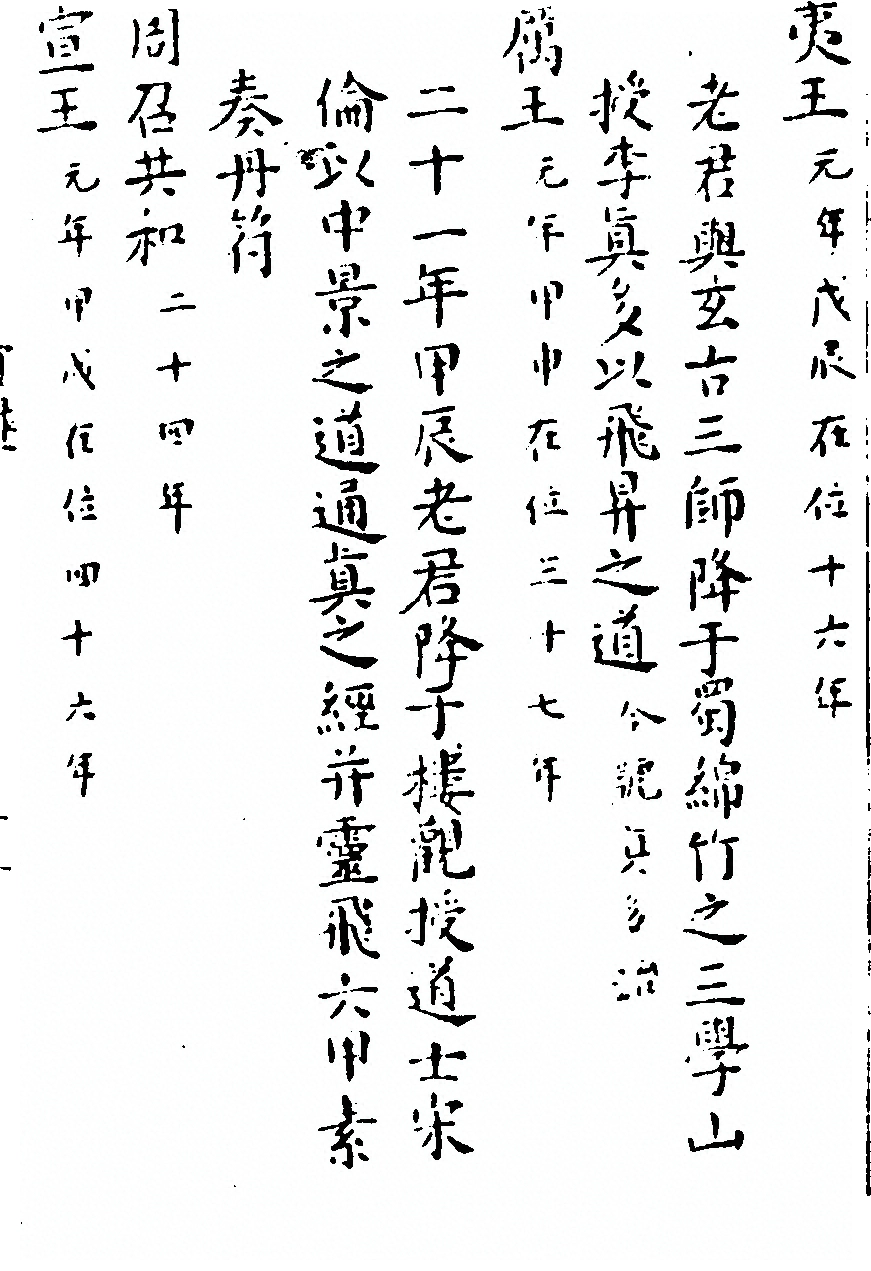 夷王元年戊辰在位十六年
老君與玄古三師降于蜀綿竹之三學山
授李眞多以飛昇之道今號眞多治
厲王元年甲申在位三十七年
二十一年甲辰老君降于樓觀授道士宋
倫以中景之道通眞之經并靈飛六甲素
奏丹符
周召共和二十四年
宣王元年甲戌在位四十六年